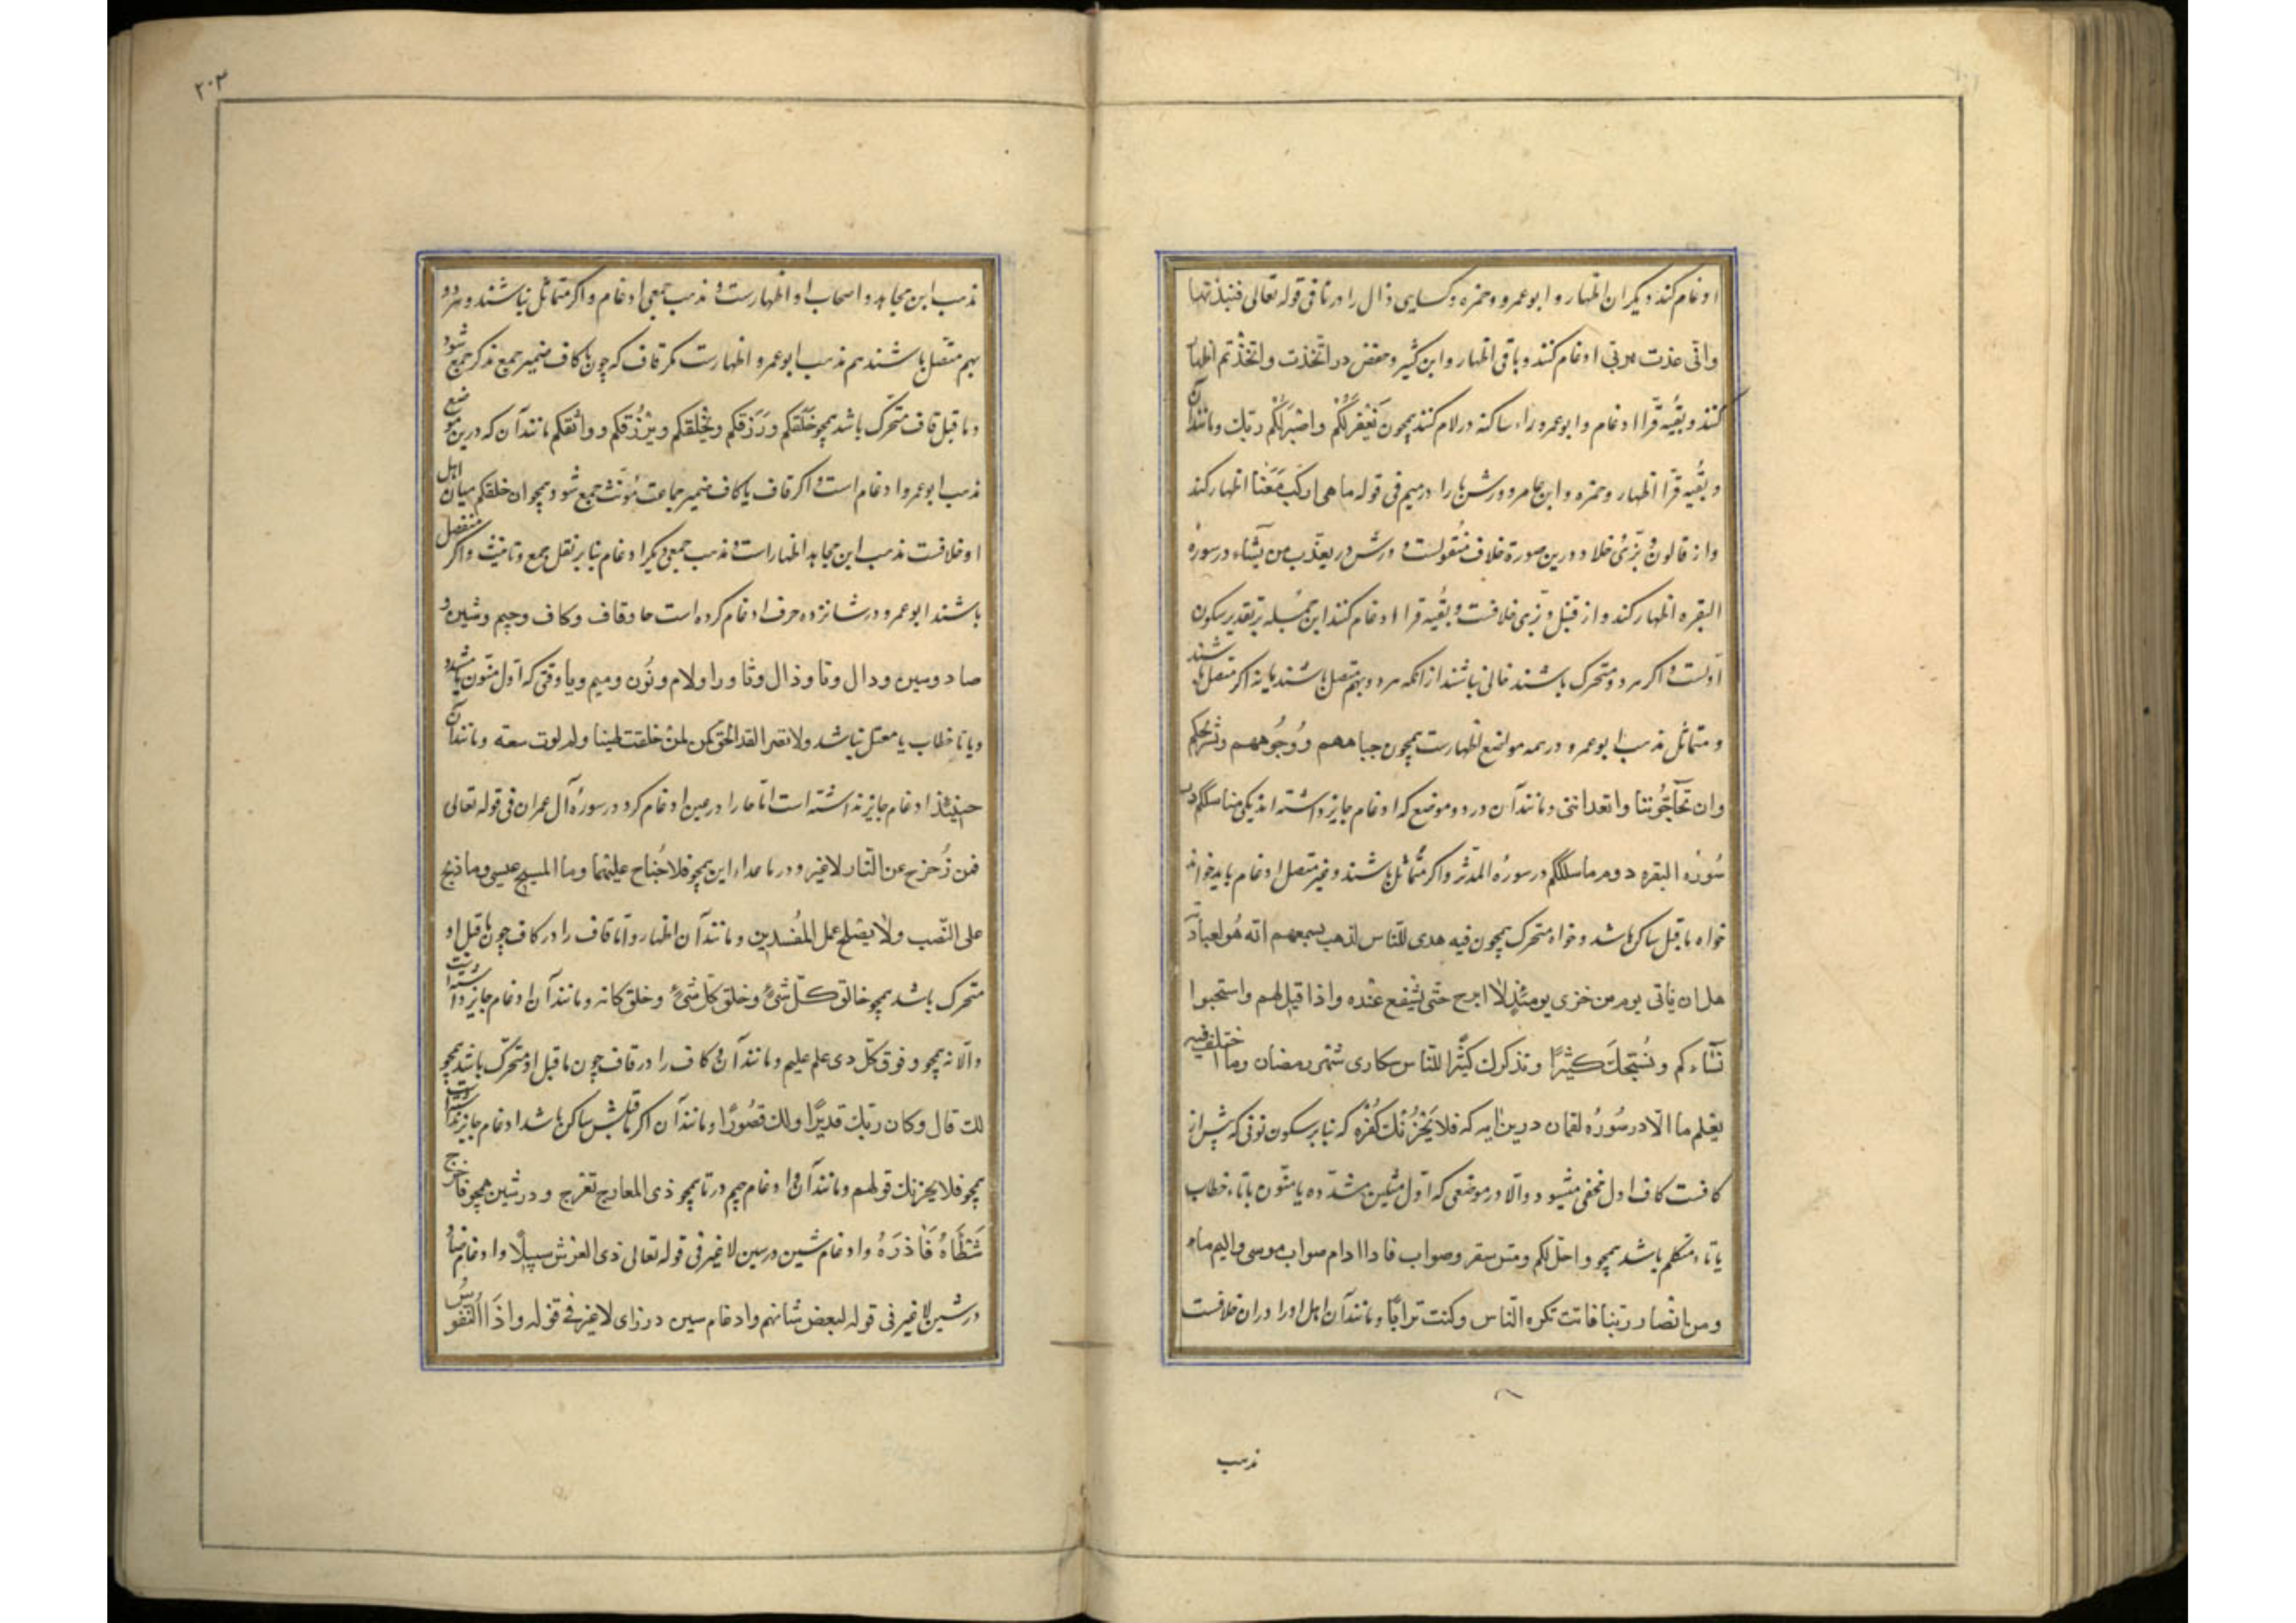 ادغام کنند و دیگران اظهار و ابو عمرو و حمزه و کسایی ذال را در تا فی قوله تعالی فنبذتها
وانی عذت بربی ادغام کنند و باقی اظهار و ابن کثیر و حفص در اتخذت و اتخذتم اظهار
کنند و بقیه قرا ادغام و ابو عمرو راء ساکنه در لام کنند همچون نغفر لکم و اصبر لحکم ربك و مانند آن
و بقیه قرا اظهار و حمزه و ابن عامر و ورش با را در میم فی قوله ما هی ارکب معنا اظهار کنند
و از قالون و بزی و خلاد درین صورة خلاف منقولست و ورش در یعذب من یشاء در سورة
البقره اظهار کند و از قنبل و بزی خلافست و بقیه قرا ادغام کنند این مسله بر تقدیر سکون
اولست و اکر هر دو متحرک باشند خالی نباشند از آنکه هر دو بهم متصل باشند یا نه اکر متصل باشند
و متماثل مذهب ابو عمرو در همه مواضع اظهارست همچون جباههم و وجوههم و بشرککم
وان تحاجوننا و اتعداننی و مانند آن در دو موضع که ادغام جایز داشته اند یکی مناسککم در
سورة البقره دوم ما سلککم در سورة المدثر و اکر متماثل باشند و غیر متصل ادغام باید خواند
خواه ماقبل ساکن باشد و خواه متحرک همچون فیه هدی للناس لذهب بسمعهم انه هو لعبادته
هل ان یاتی یوم من خزی یومئذ لا ابرح حتی یشفع عنده و اذا قیل لهم و استحیوا
نساءکم و نسبحك کثیرا و نذکرك کثیرا للناس سکاری شهر رمضان وما اختلف فیه
یعلم ما الا در سورة لقمان درین آیه که فلا یحزنك کفره که بنابر سکون نونی که پیش از
کافست کاف اول مخفی میشود و الا در موضعی که اول مثلین مشدده یا منون یا تاء خطاب
یا تاء متکلم باشد همچو و احل لکم و مس سقر و صواب موسی و الیم ماء
و من انصار ربنا فانت تکره الناس و کنت ترابا و مانند آن اهل اورا در ان خلافست
مذهب
٢٠٣
مذهب ابن مجاهد و اصحاب او اظهارست و مذهب جمعی ادغام و اکر متماثل نباشند و هر دو
بهم متصل باشند هم مذهب ابو عمرو اظهارست مکر قاف که چون با کاف ضمیر جمع مذکر جمع شود
و ماقبل قاف متحرک باشد همچو خلقکم و رزقکم و یخلقکم و یرزقکم و واثقکم مانند آن که درین موضع
مذهب ابو عمرو ادغام است و اکر قاف با کاف ضمیر جماعت مؤنث جمع شود همچو ان خلقکم میان اهل
او خلافست مذهب ابن مجاهد اظهار است و مذهب جمعی دیکر ادغام بنابر نقل جمع و تانیث و اکر منفصل
باشند ابو عمرو در شانزده حرف ادغام کرده است حا و قاف و کاف و جیم و شین و
صاد و سین و دال و تا و ذال و ثا و را و لام و نون و میم و با وقتی که اول منون یا مشدد
و یا تا خطاب یا معتل نباشد لمن خلقت طینا ولم یؤت سعة و مانند آن
حینئذ ادغام جایز نداشته است اما حا را در عین ادغام کرد در سورة آل عمران فی قوله تعالی
فمن زحزح عن النار لاغیر و در ما عداء این همچو فلا جناح علیهما وما المسیح عیسی وما ذبح
علی النصب ولا یصلح عمل المفسدین و مانند آن اظهار و اما قاف را در کاف چون ماقبل او
متحرک باشد همچو خالق کل شیء و خلق کل شیء و خلق کانه و مانند آن ادغام جایز داشته است
والا نه همچو و فوق کل ذی علم علیم و مانند آن و کاف را در قاف چون ماقبل او متحرک باشد همچو
لك قال و کان ربك قدیرا ولك قصورا و مانند آن و اکر ماقبلش ساکن باشد ادغام جایز نداشته است
همچو فلا یحزنك قولهم و مانند آن و ادغام جیم در تا همچو ذی المعارج تعرج و در شین همچو اخرج
شطأه فآزره و ادغام شین در سین لاغیر فی قوله تعالی ذی العرش سبیلا و ادغام ضاد
در شین لاغیر فی قوله لبعض شانهم و ادغام سین در زای لاغیر فی قوله و اذا النفوس